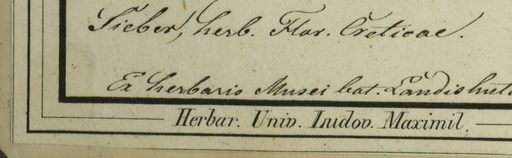 Sieber, herb. Flor. Creticae.
Ex herbario Musei bat. Landishut
Herbar. Univ. Ludov. Maximil.